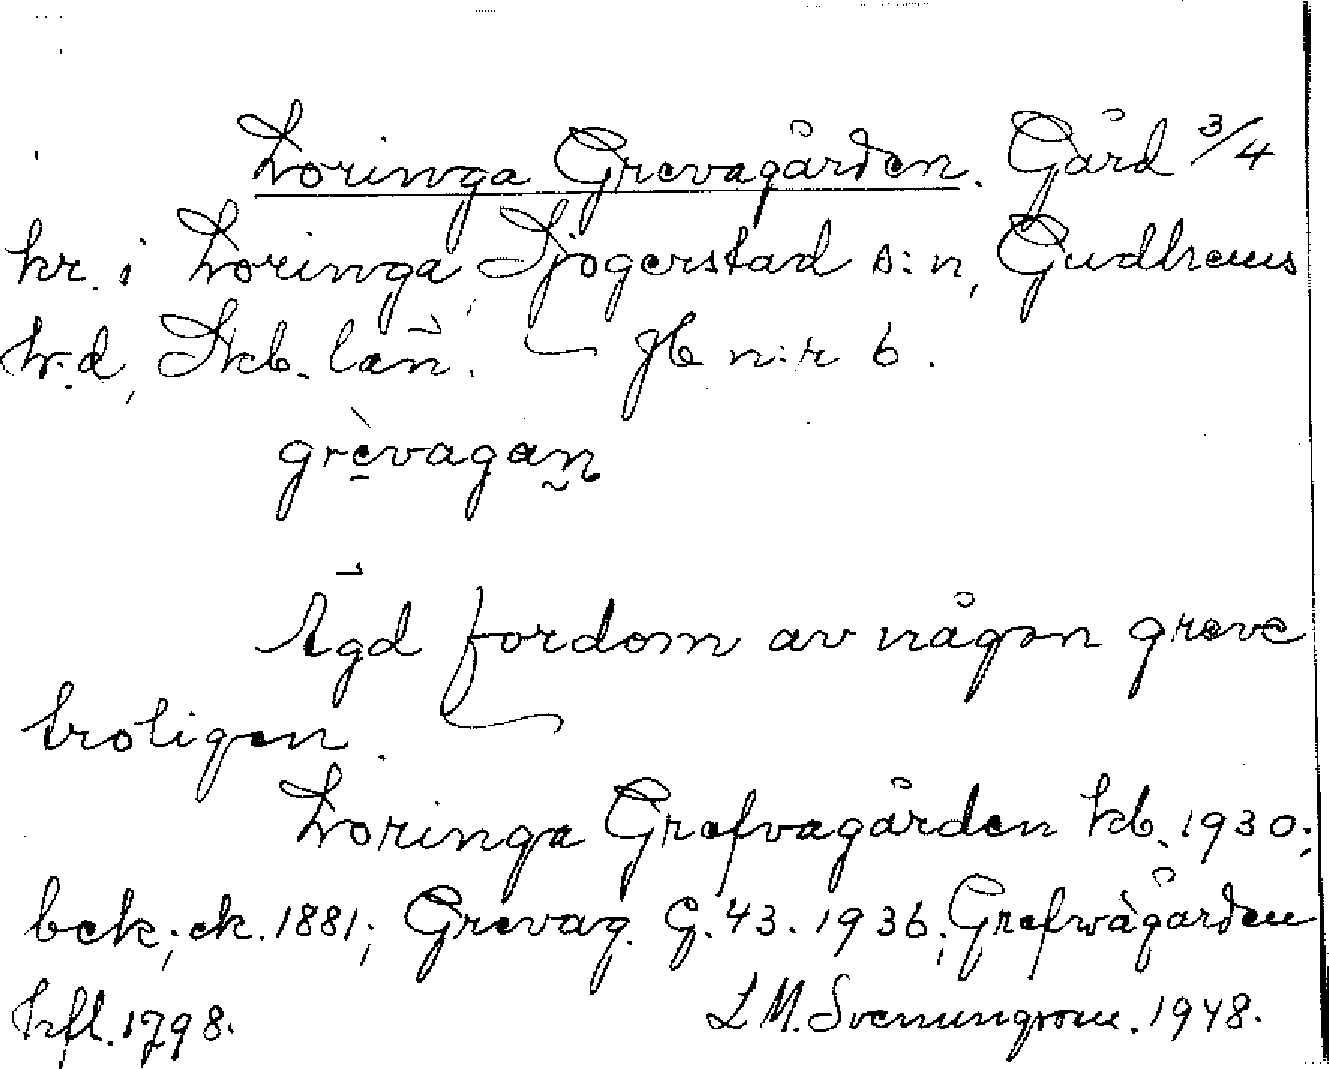 Loringa Grevagården. Gård 3/4
hr. i Loringa, Sjogerstad s:n, Gudhems
h:d, Skb. län. — jb n:r 6.
grèvagan
Ägd fordom av någon greve
troligen.
Loringa Grefvagården kb. 1930;
bck; ek. 1881; Grevag. G. 43. 1936; Grefwagården
hfl. 1798. L M. Svenungsson. 1948.